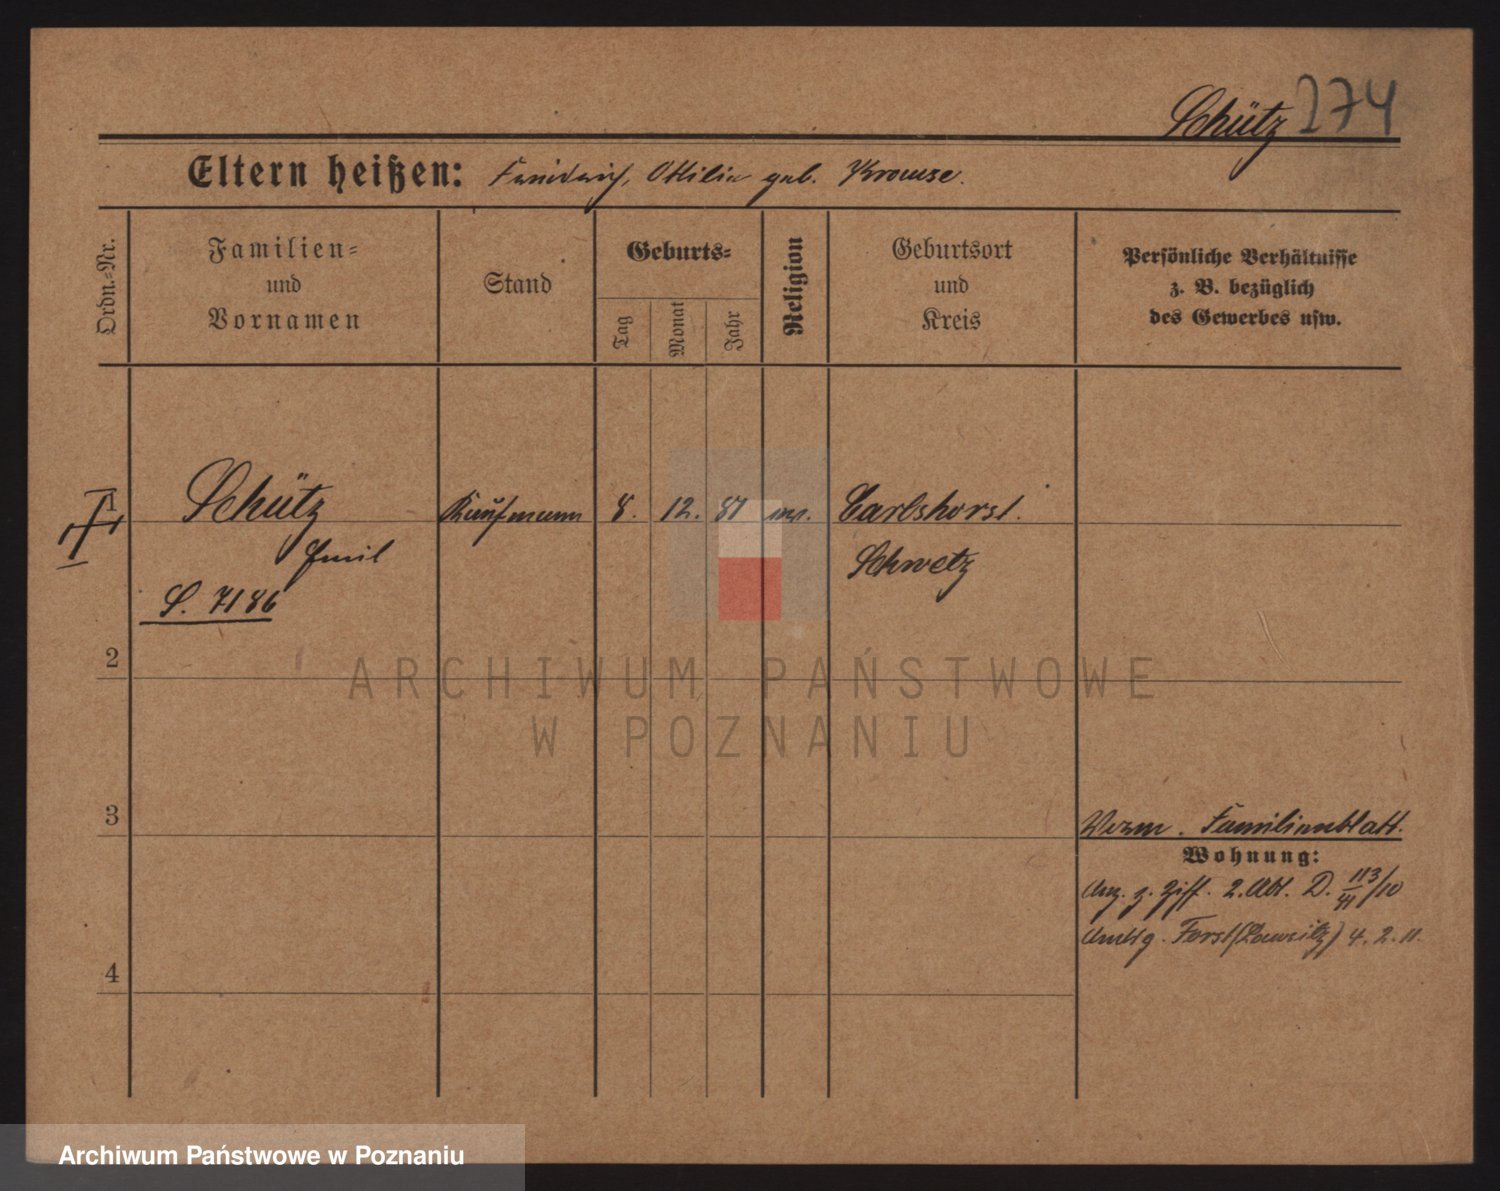 Schütz 274
Eltern heißen: Friedrich, Ottilie geb. Krause.
Ordn.-Nr.
Familien-
und
Vornamen
Stand
Geburts-
Tag
Monat
Jahr
Religion
Geburtsort
und
Kreis
Persönliche Verhältnisse
z. B. bezüglich
des Gewerbes usw.
1 Schütz Kaufmann 8. 12. 81 Carlshorst.
Emil Schwetz
S. 7186
2
ARCHIWUM PAŃSTWOWE
W POZNANIU
3
Familienblatt.
Wohnung:
Anz. z. Ziff. 2. Abt. D. 113/10
Forst (Lausitz) 4. 2. 11.
4
Archiwum Państwowe w Poznaniu